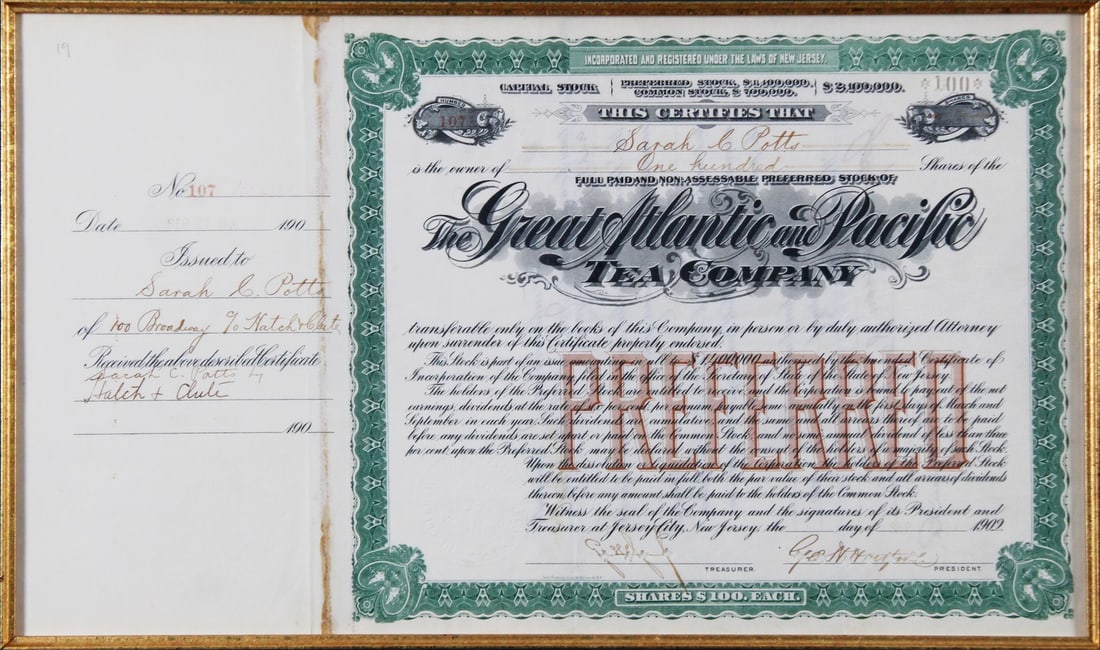 19
No 107
Date 190
Issued to
Sarah C. Potts
of 100 Broadway c/o Hatch & Clute
Received the above described Certificate
Sarah C. Potts by
Hatch & Clute
190
INCORPORATED AND REGISTERED UNDER THE LAWS OF NEW JERSEY.
CAPITAL STOCK PREFERRED STOCK, $1,400,000. $2,100,000.
COMMON STOCK, $700,000.
*100*
NUMBER
107
THIS CERTIFIES THAT
NUMBER
Sarah C Potts
is the owner of One hundred Shares of the
FULL PAID AND NON-ASSESSABLE PREFERRED STOCK OF
The Great Atlantic and Pacific
TEA COMPANY
transferable only on the books of this Company, in person or by duly authorized Attorney
upon surrender of this Certificate properly endorsed.
This Stock is part of an issue amounting in all to $1,400,000 authorized by the Amended Certificate of
Incorporation of the Company filed in the office of the Secretary of State of the State of New Jersey.
The holders of the Preferred Stock are entitled to receive, and the corporation is bound to pay out of the net
earnings, dividends at the rate of per cent. per annum, payable semi-annually on the first days of March and
September in each year. Such dividends are cumulative and the same and all arrears thereof are to be paid
before any dividends are set apart or paid on the Common Stock and no semi-annual dividend of less than three
per cent. upon the Preferred Stock may be declared without the consent of the holders of a majority of such Stock.
Upon the dissolution or liquidation of the Corporation the holders of the Preferred Stock
will be entitled to be paid in full both the par value of their stock and all arrears of dividends
thereon before any amount shall be paid to the holders of the Common Stock.
PREFERRED
Witness the seal of the Company and the signatures of its President and
Treasurer at Jersey City, New Jersey, the day of 1902
TREASURER.
Geo H Hartford
PRESIDENT.
SHARES $100. EACH.